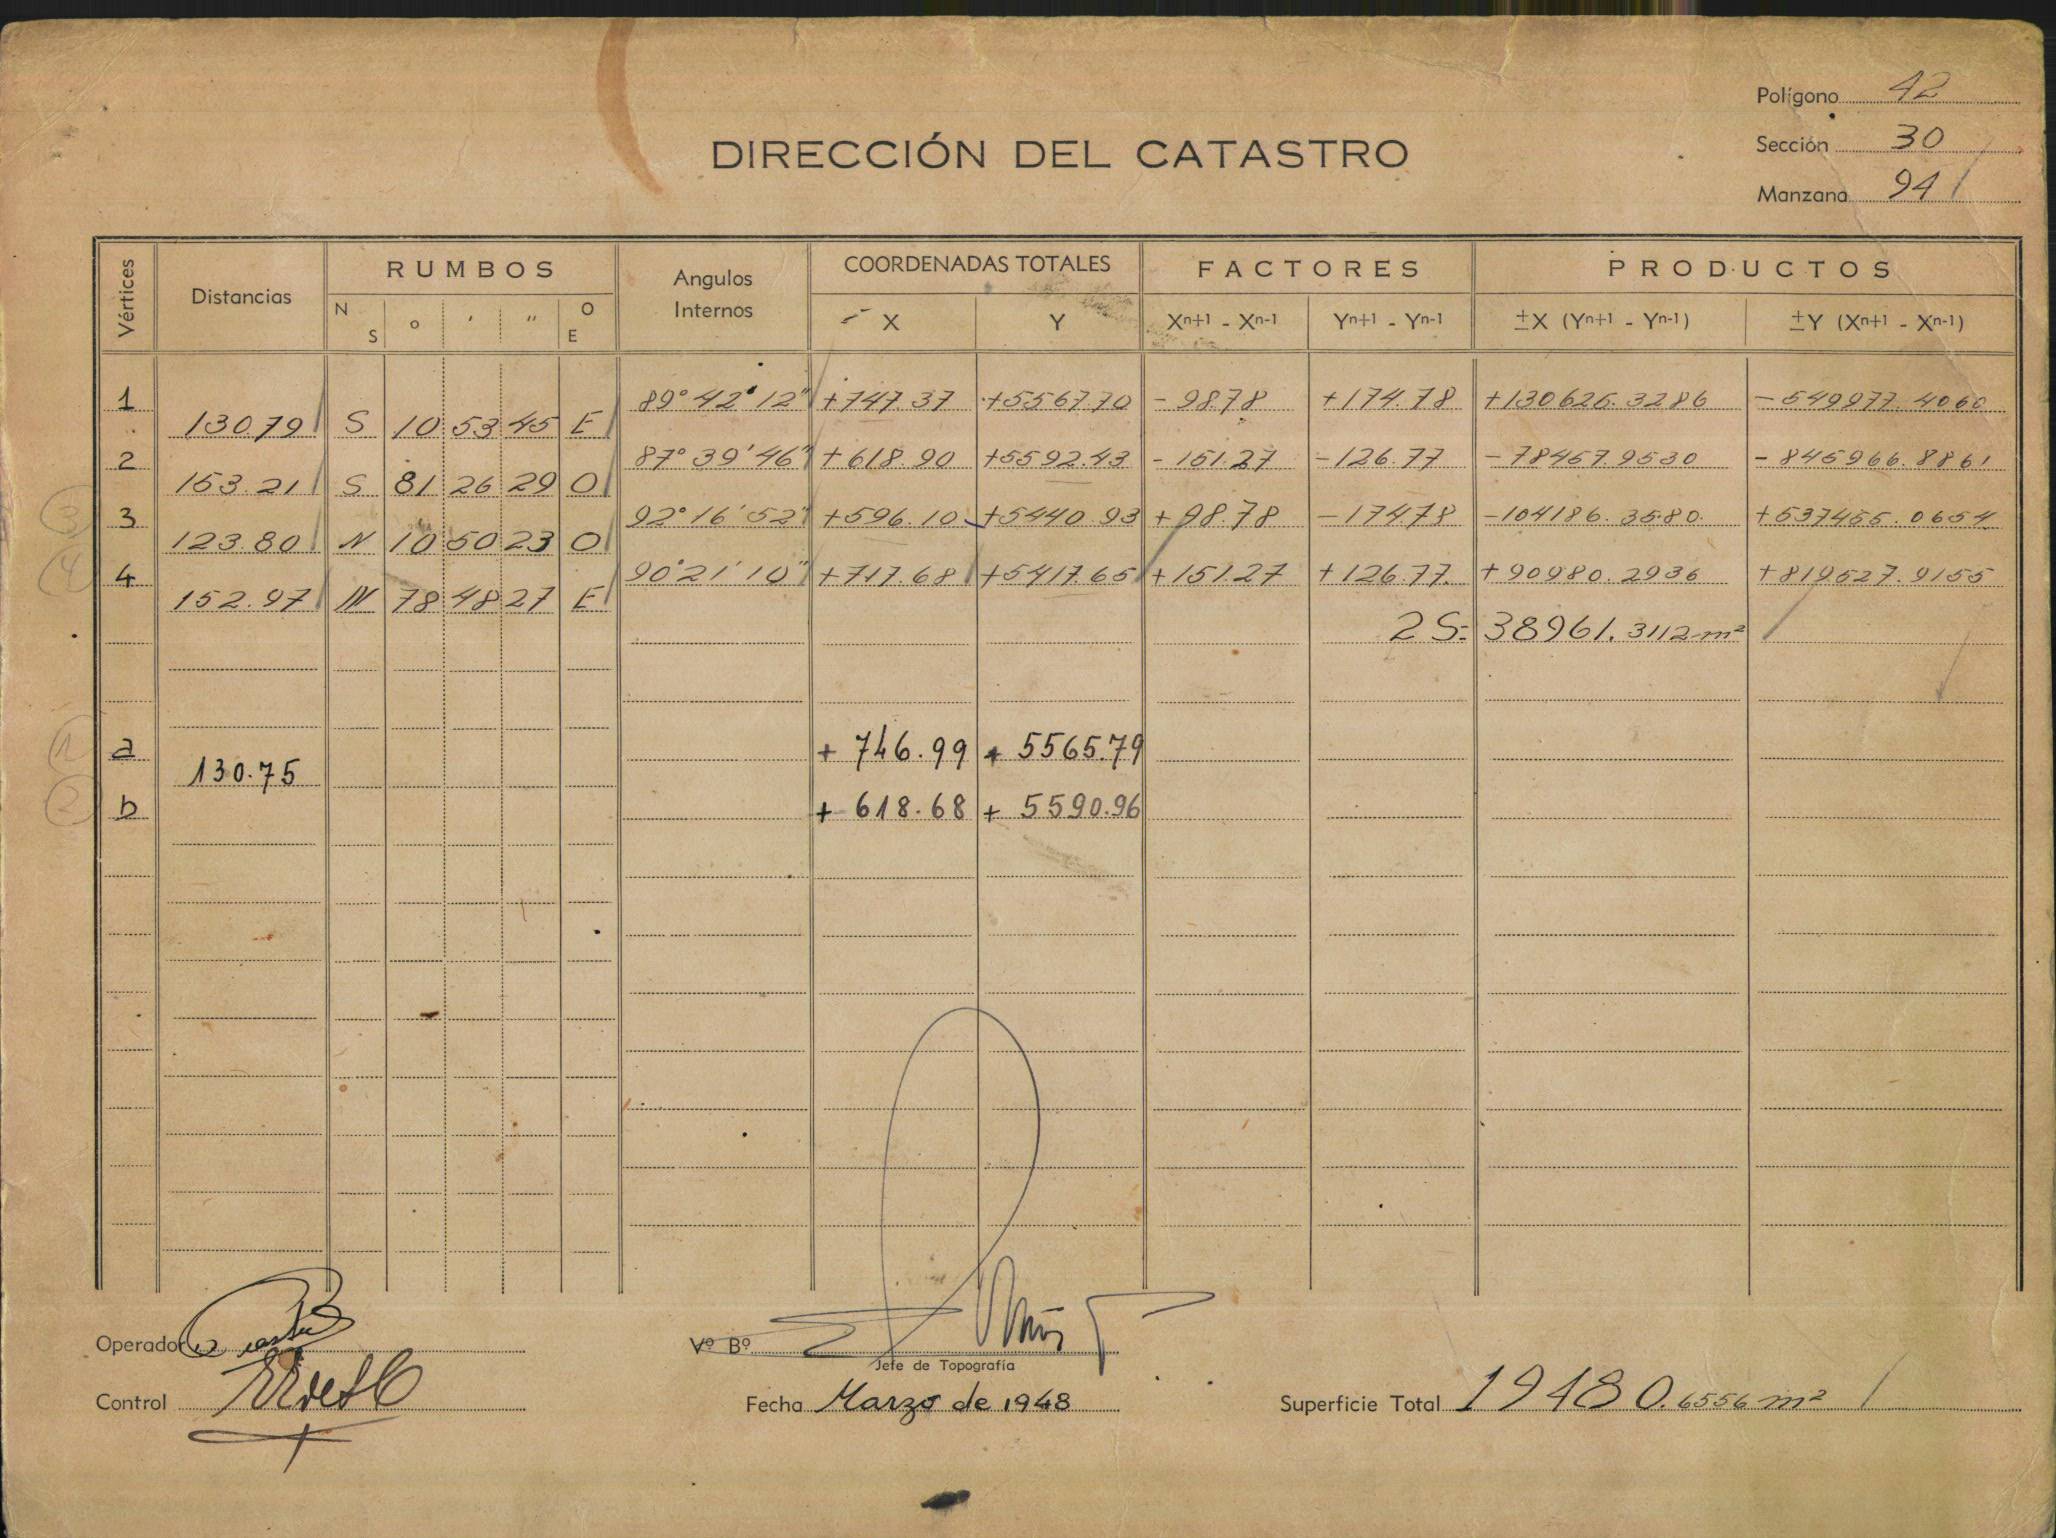 Polígono 42
DIRECCIÓN DEL CATASTRO
Sección 30
Manzana 94
Vértices Distancias RUMBOS Angulos Internos COORDENADAS TOTALES FACTORES PRODUCTOS
N S o ' " O E X Y Xn+1 - Xn-1 Yn+1 - Yn-1 ±X (Yn+1 - Yn-1) ±Y (Xn+1 - Xn-1)
1 89° 42' 12" +747.37 +5567.70 -98.78 +174.78 +130626.3286 -549977.4060
130.79 S 10 53 45 E
2 87° 39' 46" +618.90 +5592.43 -151.27 -126.77 -78457.9530 -845966.8861
153.21 S 81 26 29 O
3 3 92° 16' 52" +596.10 +5440.93 +98.78 -174.78 -104186.3580 +537455.0654
123.80 N 10 50 23 O
4 4 90° 21' 10" +717.68 +5417.65 +151.27 +126.77 +90980.2936 +819527.9155
152.97 N 78 48 27 E
2S= 38961.3112 m²
1 a +746.99 +5565.79
130.75
2 b +618.68 +5590.96
Operador
Vº Bº
Jefe de Topografía
Control
Fecha Marzo de 1948
Superficie Total 19480.6556 m²